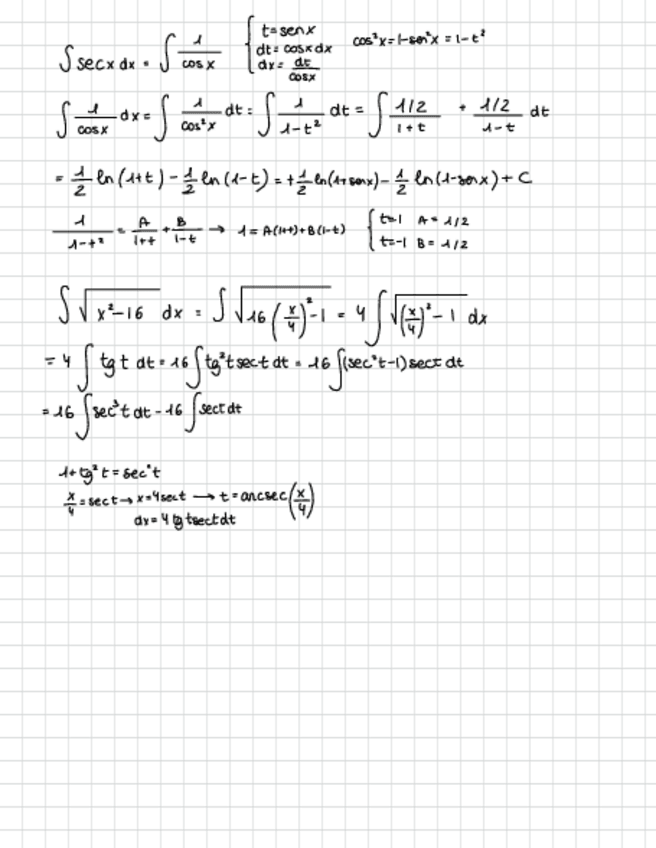 ∫ sec x dx = ∫ 1/cos x { t = sen x
dt = cos x dx
dx = dt/cos x
cos²x = 1-sen²x = 1-t²
∫ 1/cos x dx = ∫ 1/cos²x dt = ∫ 1/1-t² dt = ∫ 1/2/1+t + 1/2/1-t dt
= 1/2 ln(1+t) - 1/2 ln(1-t) = +1/2 ln(1+sen x) - 1/2 ln(1-sen x) + C
1/1-t² = A/1+t + B/1-t → 1 = A(1+t)+B(1-t) { t=1 A = 1/2
t=-1 B = 1/2
∫ √x²-16 dx = ∫ √16 (x/4)²-1 = 4 ∫ √(x/4)² - 1 dx
= 4 ∫ tg t dt = 16 ∫ tg²t sec t dt = 16 ∫ (sec²t-1) sec t dt
= 16 ∫ sec³t dt - 16 ∫ sec t dt
1+tg²t = sec²t
x/4 = sec t → x = 4 sec t → t = arcsec(x/4)
dx = 4 tg t sec t dt